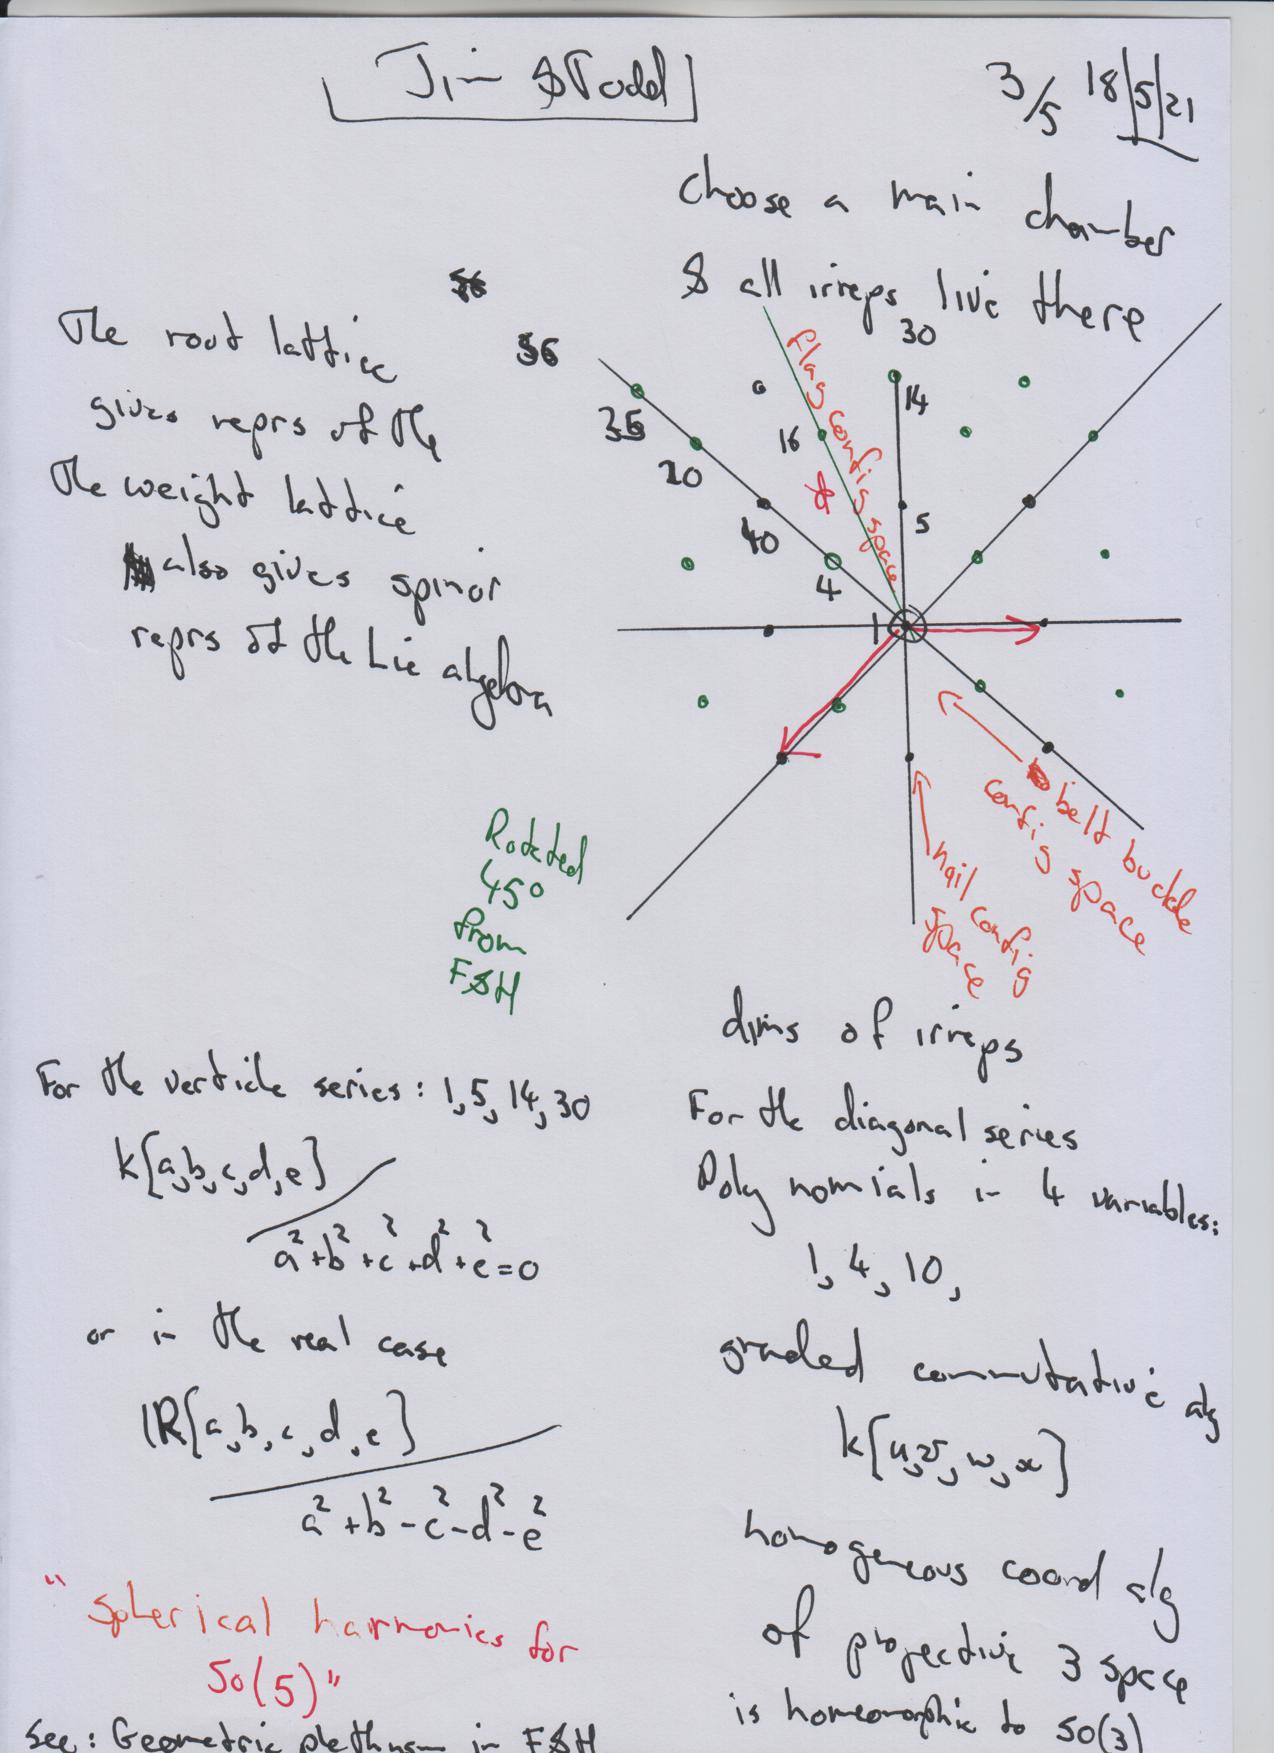 Jim & Todd
3/5 18/5/21
choose a main chamber
& all irreps live there
The root lattice
gives reprs of the
The weight lattice
also gives spinor
reprs of the Lie algebra
56
56
30
14
35
16
20
5
40
4
1
flag config space
belt buckle
config space
nail config
space
Rotated
45°
from
F&H
dims of irreps
For the verticle series: 1,5,14,30
k[a,b,c,d,e]
a²+b²+c²+d²+e²=0
or in the real case
IR[a,b,c,d,e]
a²+b²-c²-d²-e²
"spherical harmonics for
SO(5)"
See: Geometric plethysm in F&H
For the diagonal series
Polynomials in 4 variables:
1, 4, 10,
graded commutative alg
k[u,v,w,x]
homogeneous coord alg
of projective 3 space
is homeomorphic to SO(3)